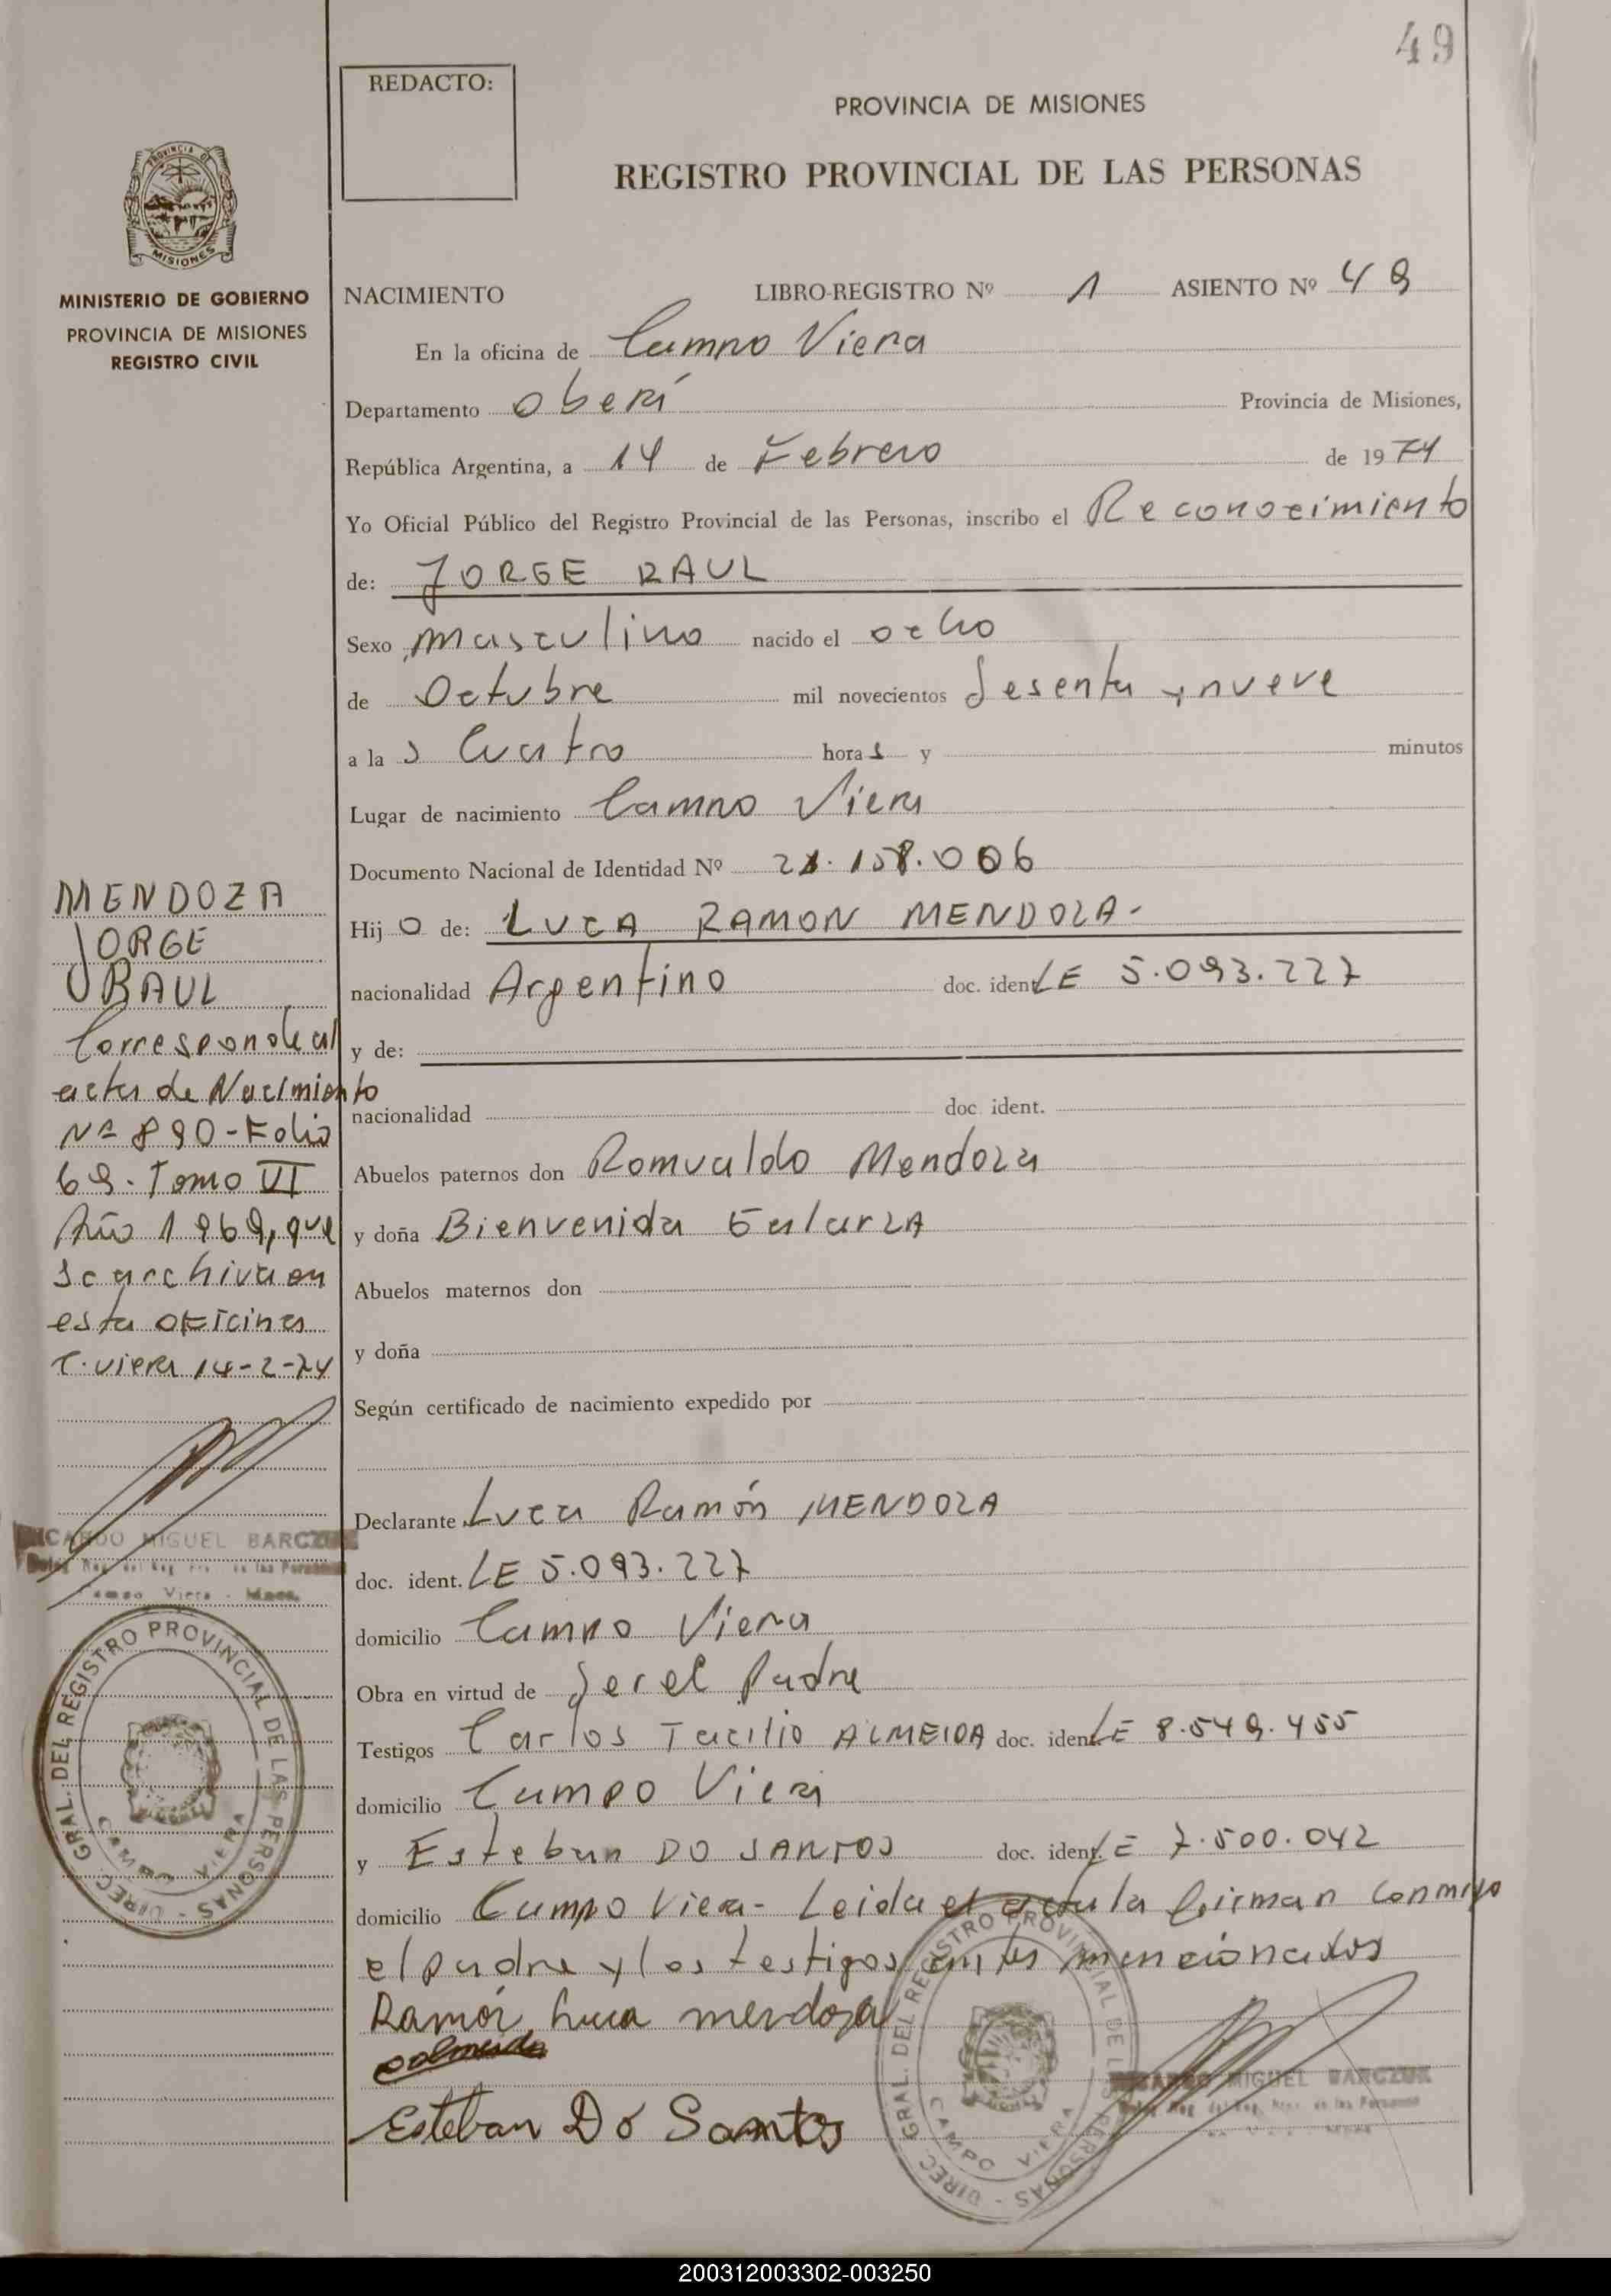 49
REDACTO:
PROVINCIA DE MISIONES
REGISTRO PROVINCIAL DE LAS PERSONAS
PROVINCIA DE
MISIONES
MINISTERIO DE GOBIERNO
PROVINCIA DE MISIONES
REGISTRO CIVIL
NACIMIENTO LIBRO-REGISTRO Nº 1 ASIENTO Nº 49
En la oficina de Campo Viera
Departamento Oberá Provincia de Misiones,
República Argentina, a 14 de Febrero de 1974
Yo Oficial Público del Registro Provincial de las Personas, inscribo el Reconocimiento
de: JORGE RAUL
Sexo masculino nacido el ocho
de Octubre mil novecientos Sesenta y nueve
a la s Cuatro hora s y minutos
Lugar de nacimiento Campo Viera
Documento Nacional de Identidad Nº 21.158.006
Hij o de: LUCA RAMON MENDOZA-
nacionalidad Argentino doc. ident. LE 5.093.227
y de:
nacionalidad doc. ident.
Abuelos paternos don Romualdo Mendoza
y doña Bienvenida Galarza
Abuelos maternos don
y doña
Según certificado de nacimiento expedido por
Declarante Luca Ramón MENDOZA
doc. ident. LE 5.093.227
domicilio Campo Viera
Obra en virtud de Ser el Padre
Testigos Carlos Tacilio ALMEIDA doc. ident. LE 8.549.455
domicilio Campo Viera
y Esteban DO SANTOS doc. ident. LE 7.500.042
domicilio Campo Viera- Leida el acta la firman conmigo
el padre y los testigos antes mencionados
Ramón Luca mendoza
Esteban Do Santos
MENDOZA
JORGE
RAUL
Corresponde al
acta de Nacimiento
Nº 890-Folio
69-Tomo VI
Año 1969, que
se archiva en
esta oficina
C. viera 14-2-74
RICARDO MIGUEL BARCZUK
Campo Viera - Mnes.
DIREC. GRAL. DEL REGISTRO PROVINCIAL DE LAS PERSONAS
CAMPO VIERA
DIREC. GRAL. DEL REGISTRO PROVINCIAL DE LAS PERSONAS
CAMPO VIERA
RICARDO MIGUEL BARCZUK
200312003302-003250